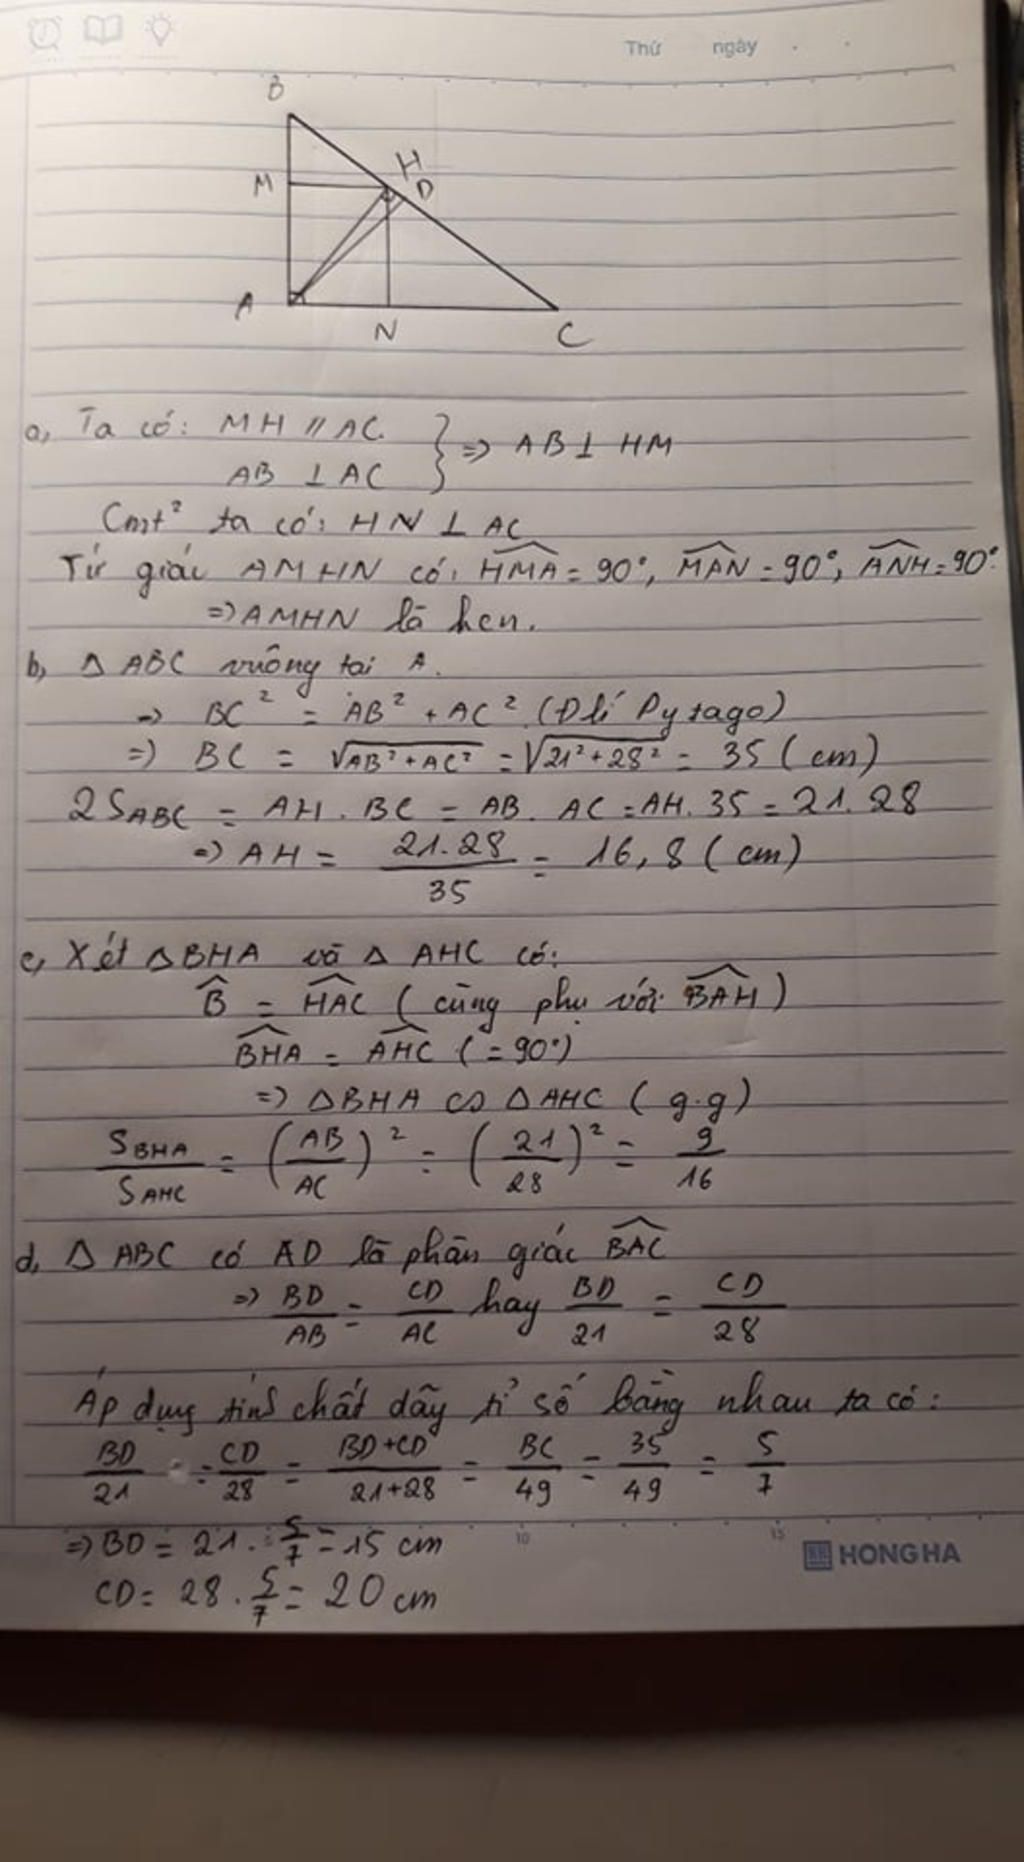 Thứ ngày
B
M
H
D
A
N
C
a, Ta có: MH // AC
AB ⊥ AC } => AB ⊥ HM
Cmt² ta có: HN ⊥ AC
Tứ giác AMHN có: \widehat{HMA} = 90°, \widehat{MAN} = 90°, \widehat{ANH} = 90°.
=> AMHN là hcn.
b, Δ ABC vuông tại A.
=> BC² = AB² + AC² (Đlí Pytago)
=> BC = √(AB² + AC²) = √(21² + 28²) = 35 (cm)
2S_ABC = AH . BC = AB . AC = AH . 35 = 21 . 28
=> AH = 21.28/35 = 16,8 (cm)
c, Xét Δ BHA và Δ AHC có:
\widehat{B} = \widehat{HAC} (cùng phụ với \widehat{BAH})
\widehat{BHA} = \widehat{AHC} (= 90°)
=> Δ BHA ∽ Δ AHC (g.g)
S_BHA/S_AHC = (AB/AC)² = (21/28)² = 9/16
d, Δ ABC có AD là phân giác \widehat{BAC}
=> BD/AB = CD/AC hay BD/21 = CD/28
Áp dụng tính chất dãy tỉ số bằng nhau ta có:
BD/21 = CD/28 = BD+CD/21+28 = BC/49 = 35/49 = 5/7
=> BD = 21 . 5/7 = 15 cm
CD = 28 . 5/7 = 20 cm
10 15
HONG HA